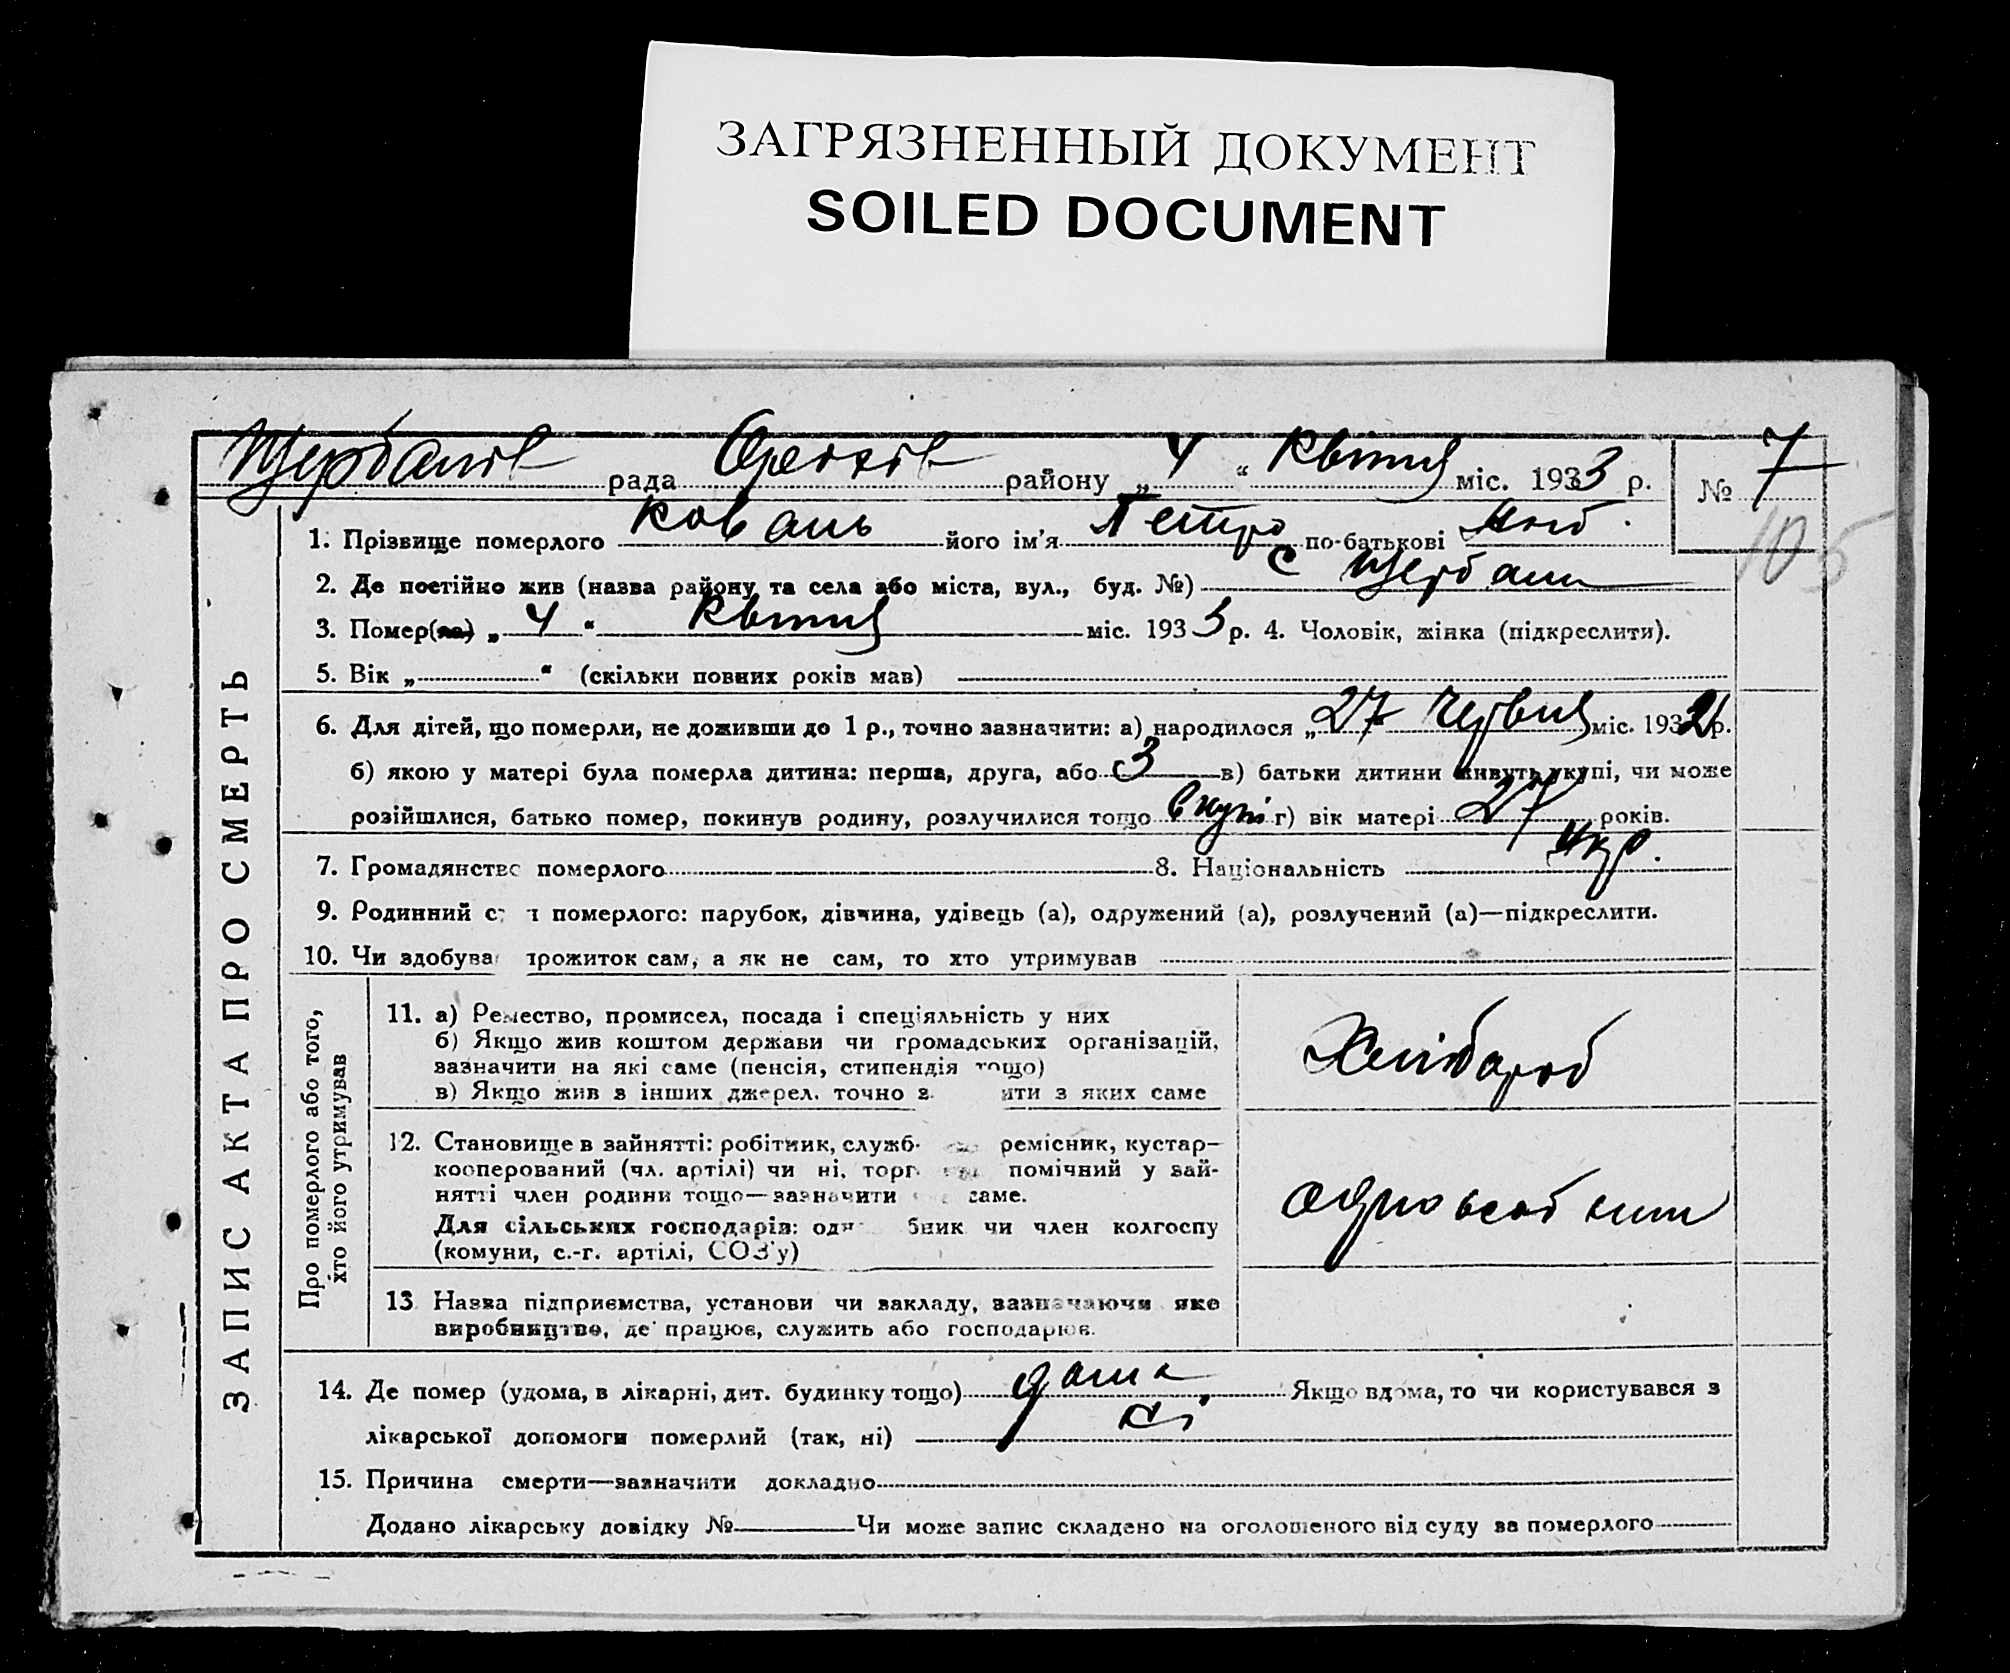 ЗАГРЯЗНЕННЫЙ ДОКУМЕНТ
SOILED DOCUMENT
рада району „ 4 “ Квітня міс. 1933 р. № 7
105
1. Прізвище померлого Коваль його ім'я Петро по-батькові
2. Де постійно жив (назва району та села або міста, вул., буд. №) с Щербани
3. Помер(ла) „ 4 “ Квітня міс. 1933 р. 4. Чоловік, жінка (підкреслити).
5. Вік „ “ (скільки повних років мав)
6. Для дітей, що померли, не доживши до 1 р., точно зазначити: а) народилося „ 27 Червня міс. 1932 р.
б) якою у матері була померла дитина: перша, друга, або 3 в) батьки дитини живуть укупі, чи може
розійшлися, батько помер, покинув родину, розлучилися тощо вкупі г) вік матері 27 років.
7. Громадянство померлого 8. Національність Укр.
9. Родинний ст н померлого: парубок, дівчина, удівець (а), одружений (а), розлучений (а)—підкреслити.
10. Чи здобува прожиток сам, а як не сам, то хто утримував
ЗАПИС АКТА ПРО СМЕРТЬ
Про померлого або того,
хто його утримував
11. а) Ремество, промисел, посада і спеціяльність у них
б) Якщо жив коштом держави чи громадських організацій,
зазначити на які саме (пенсія, стипендія тощо)
в) Якщо жив з інших джерел, точно з ити з яких саме
Хлібороб
12. Становище в зайнятті: робітник, служб ремісник, кустар–
кооперований (чл. артілі) чи ні, торг помічний у зай-
нятті член родини тощо—зазначити саме.
Для сільських господарів: одн бник чи член колгоспу
(комуни, с.-г. артілі, СОЗ'у)
одноосібник
13 Назва підприємства, установи чи закладу, зазначаючи яке
виробництво, де працює, служить або господарює.
14. Де помер (удома, в лікарні, дит. будинку тощо) дома Якщо вдома, то чи користувався з
лікарської допомоги померлий (так, ні) ні
15. Причина смерти—зазначити докладно
Додано лікарську довідку № Чи може запис складено на оголошеного від суду за померлого